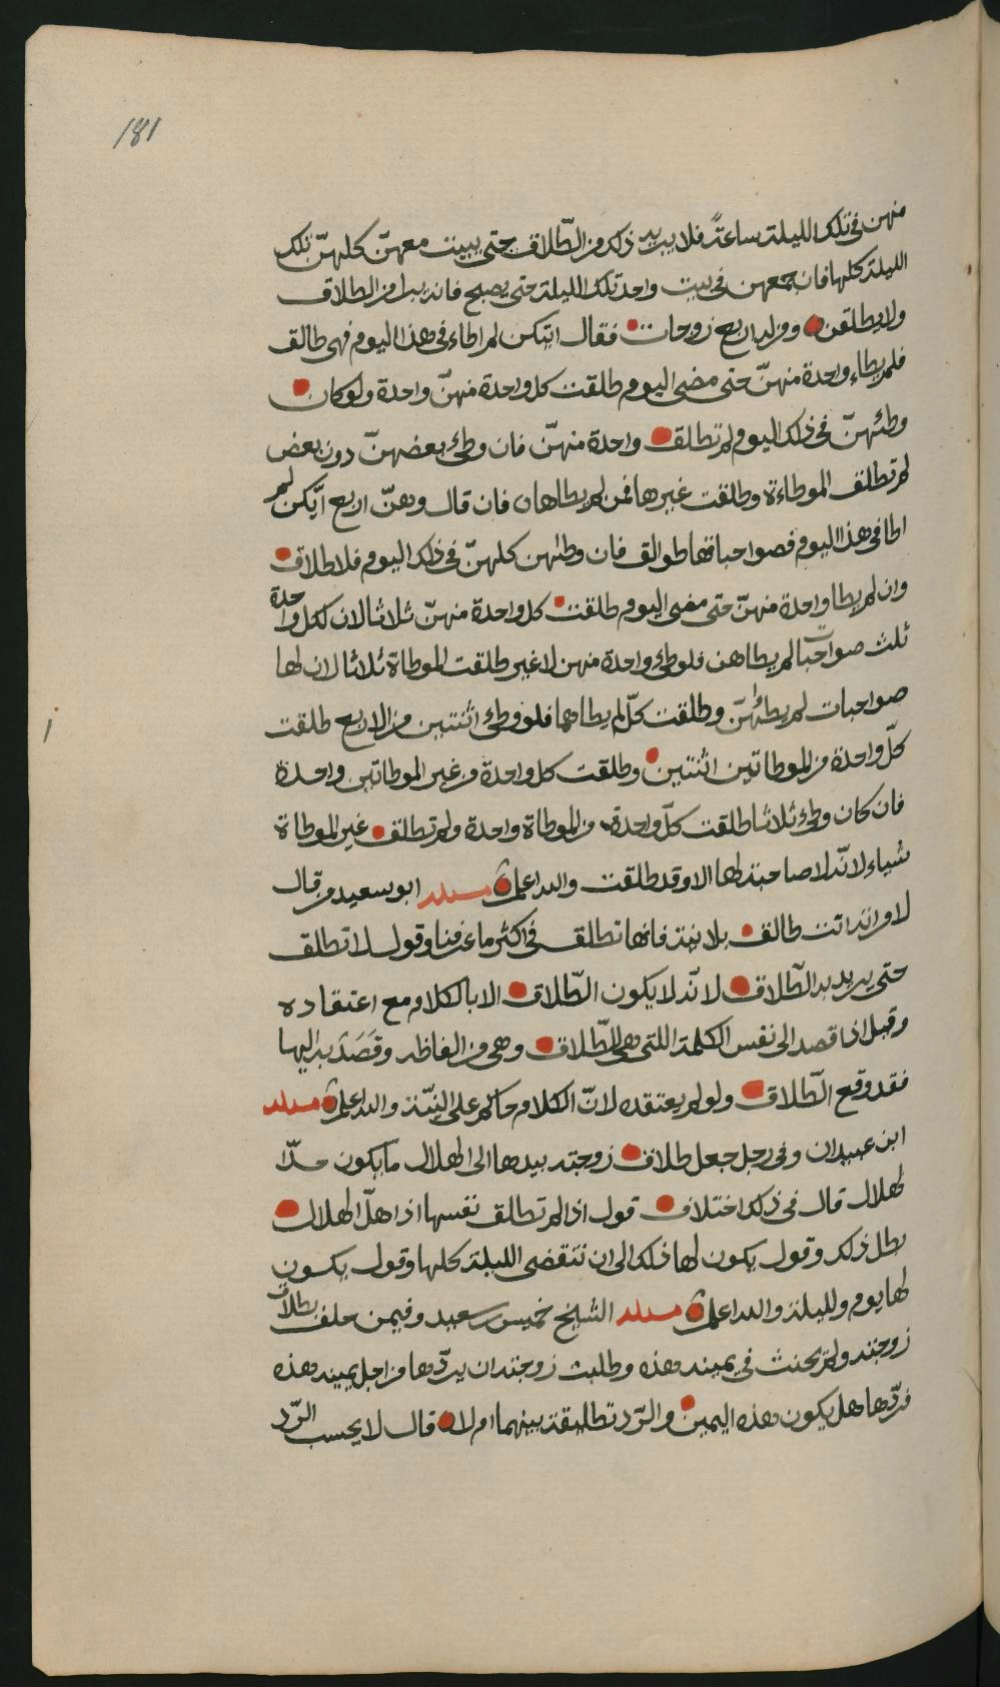 181
منهن في تلك الليلة ساعةً فلا يبر يد ذلك من الطّلاق حتى يبيت معهنّ كلهنّ تلك
الليلة كلها فان جمعهن في بيت واحد تلك الليلة حتى يصبح فانه يبرا من الطلاق
ولا يطلقن ومن له اربع زوجات فقال ايتكن لم اطاء في هذا اليوم فهي طالق
فلم يطاء واحدة منهنّ حتى مضى اليوم طلقت كل واحدة منهنّ واحدة ولو كان
وطئهنّ في ذلك اليوم لم تطلق واحدة منهنّ فان وطئ بعضهنّ دون بعض
لم تطلق الموطاءة وطلقت غيرها ممن لم يطاها فان قال وهنّ اربع ايّكن لم
اطا في هذا اليوم فصواحباتها طوالق فان وطئهن كلهنّ في ذلك اليوم فلا طلاق
وان لم يطا واحدة منهنّ حتى مضى اليوم طلقت كل واحدة منهنّ ثلاثا لان لكل واحدة
ثلث صواحبات لم يطاهن فلو وطئ واحدة منهن لا غير طلقت الموطاة ثلاثا لان لها
صواحبات لم يطئهنّ وطلقت كلّ لم يطاهما فلو وطئ اثنتين من الاربع طلقت
كلّ واحدة من الموطاتين اثنتين وطلقت كل واحدة من غير الموطاتين واحدة
فان كان وطئ ثلاثا طلقت كلّ واحدة من الموطاة واحدة ولم تطلق غير الموطاة
شياء لانّه لا صاحبة لها الا وقد طلقت والله اعلم مسئلة ابو سعيد من قال
لامراته انت طالق بلا نية فانها تطلق في اكثر ما عرفنا وقول لا تطلق
حتى يريد به الطّلاق لانّه لا يكون الطّلاق الا بالكلام مع اعتقاده
وقيل اذا قصد الى نفس الكلمة اللتي هي الطّلاق وهي من الفاظه وقَصَدَ به اليها
فقد وقع الطّلاق ولو لم يعتقده لانّ الكلام حاكم على النيّة والله اعلم مسئلة
ابن عبيدان وفي رجل جعل طلاق زوجته بيدها الى الهلال ما يكون حدّ
الهلال قال في ذلك اختلاف قول اذا لم تطلق نفسها اذا هلّ الهلال
بطل ذلك وقول يكون لها ذلك الى ان تنقضي الليلة كلها وقول يكون
لها يوم وليلة والله اعلم مسئلة الشيخ خميس بن سعيد وفيمن حلف بطلاق
زوجته ولم يحنث في يمينه هذه وطلبت زوجته ان يردّها من اجل يمينه هذه
فردّها هل يكون هذه اليمين والرّد تطليقة بينهما ام لا قال لا يحسب الرّد